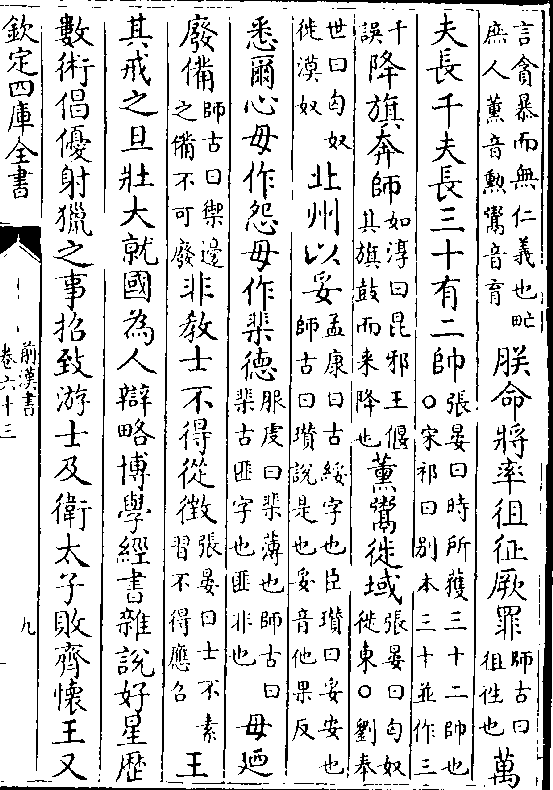 言貪暴而無仁義也甿
庶人薰音勲鬻音育
朕命將率徂征厥罪
師古曰
徂往也
萬
夫長千夫長三十有二帥
張晏曰時所獲三十二帥也
○宋祁曰别本三十並作三
千
誤
降旗奔師
如淳曰昆邪王偃
其旗鼓而来降也
薰鬻徙域
張晏曰匈奴
徙東○劉奉
世曰匈奴
徙漠奴
北州以妥
孟康曰古綏字也臣瓚曰妥安也
師古曰瓚說是也妥音他果反
悉爾心毋作怨毋作棐德
服虔曰棐薄也師古曰
棐古匪字也匪非也
毋廼
廢備
師古曰禦邊
之備不可廢
非教士不得從徵
張晏曰士不素
習不得應召
王
其戒之旦壯大就國為人辯略博學經書雜說好星歴
數術倡優射獵之事招致游士及衛太子敗齊懷王又
欽定四庫全書
前漢書
卷六十三
九